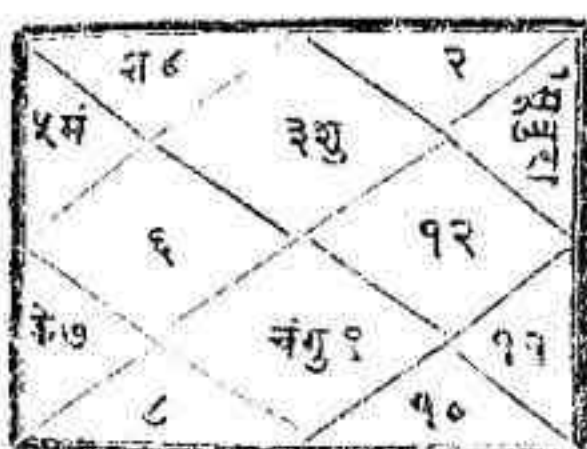 श ४
२
५मं
३शु
६
१२
के.७
चंगु ९
११
८
१०